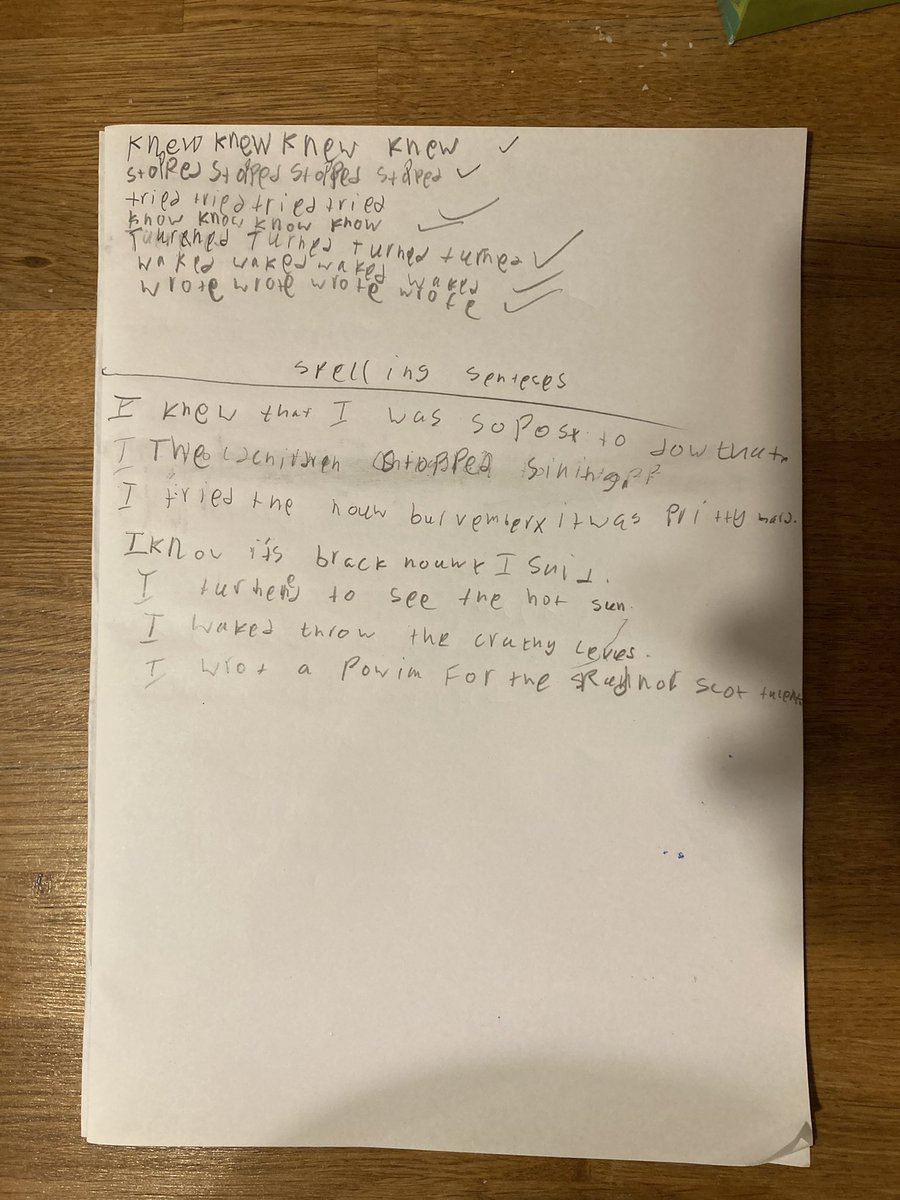 knew knew knew knew
stopped stopped stopped stopped
tried tried tried tried
know know know know
Turned turned turned
waked waked waked waked
wrote wrote wrote wrote
spelling senteces
I knew that I was sopost to dow that.
I The children stopped sining
I tried the it was pritty hard.
I know it's brack I
I turned to see the hot sun.
I waked throw the leves.
I wrot a powim for the scot